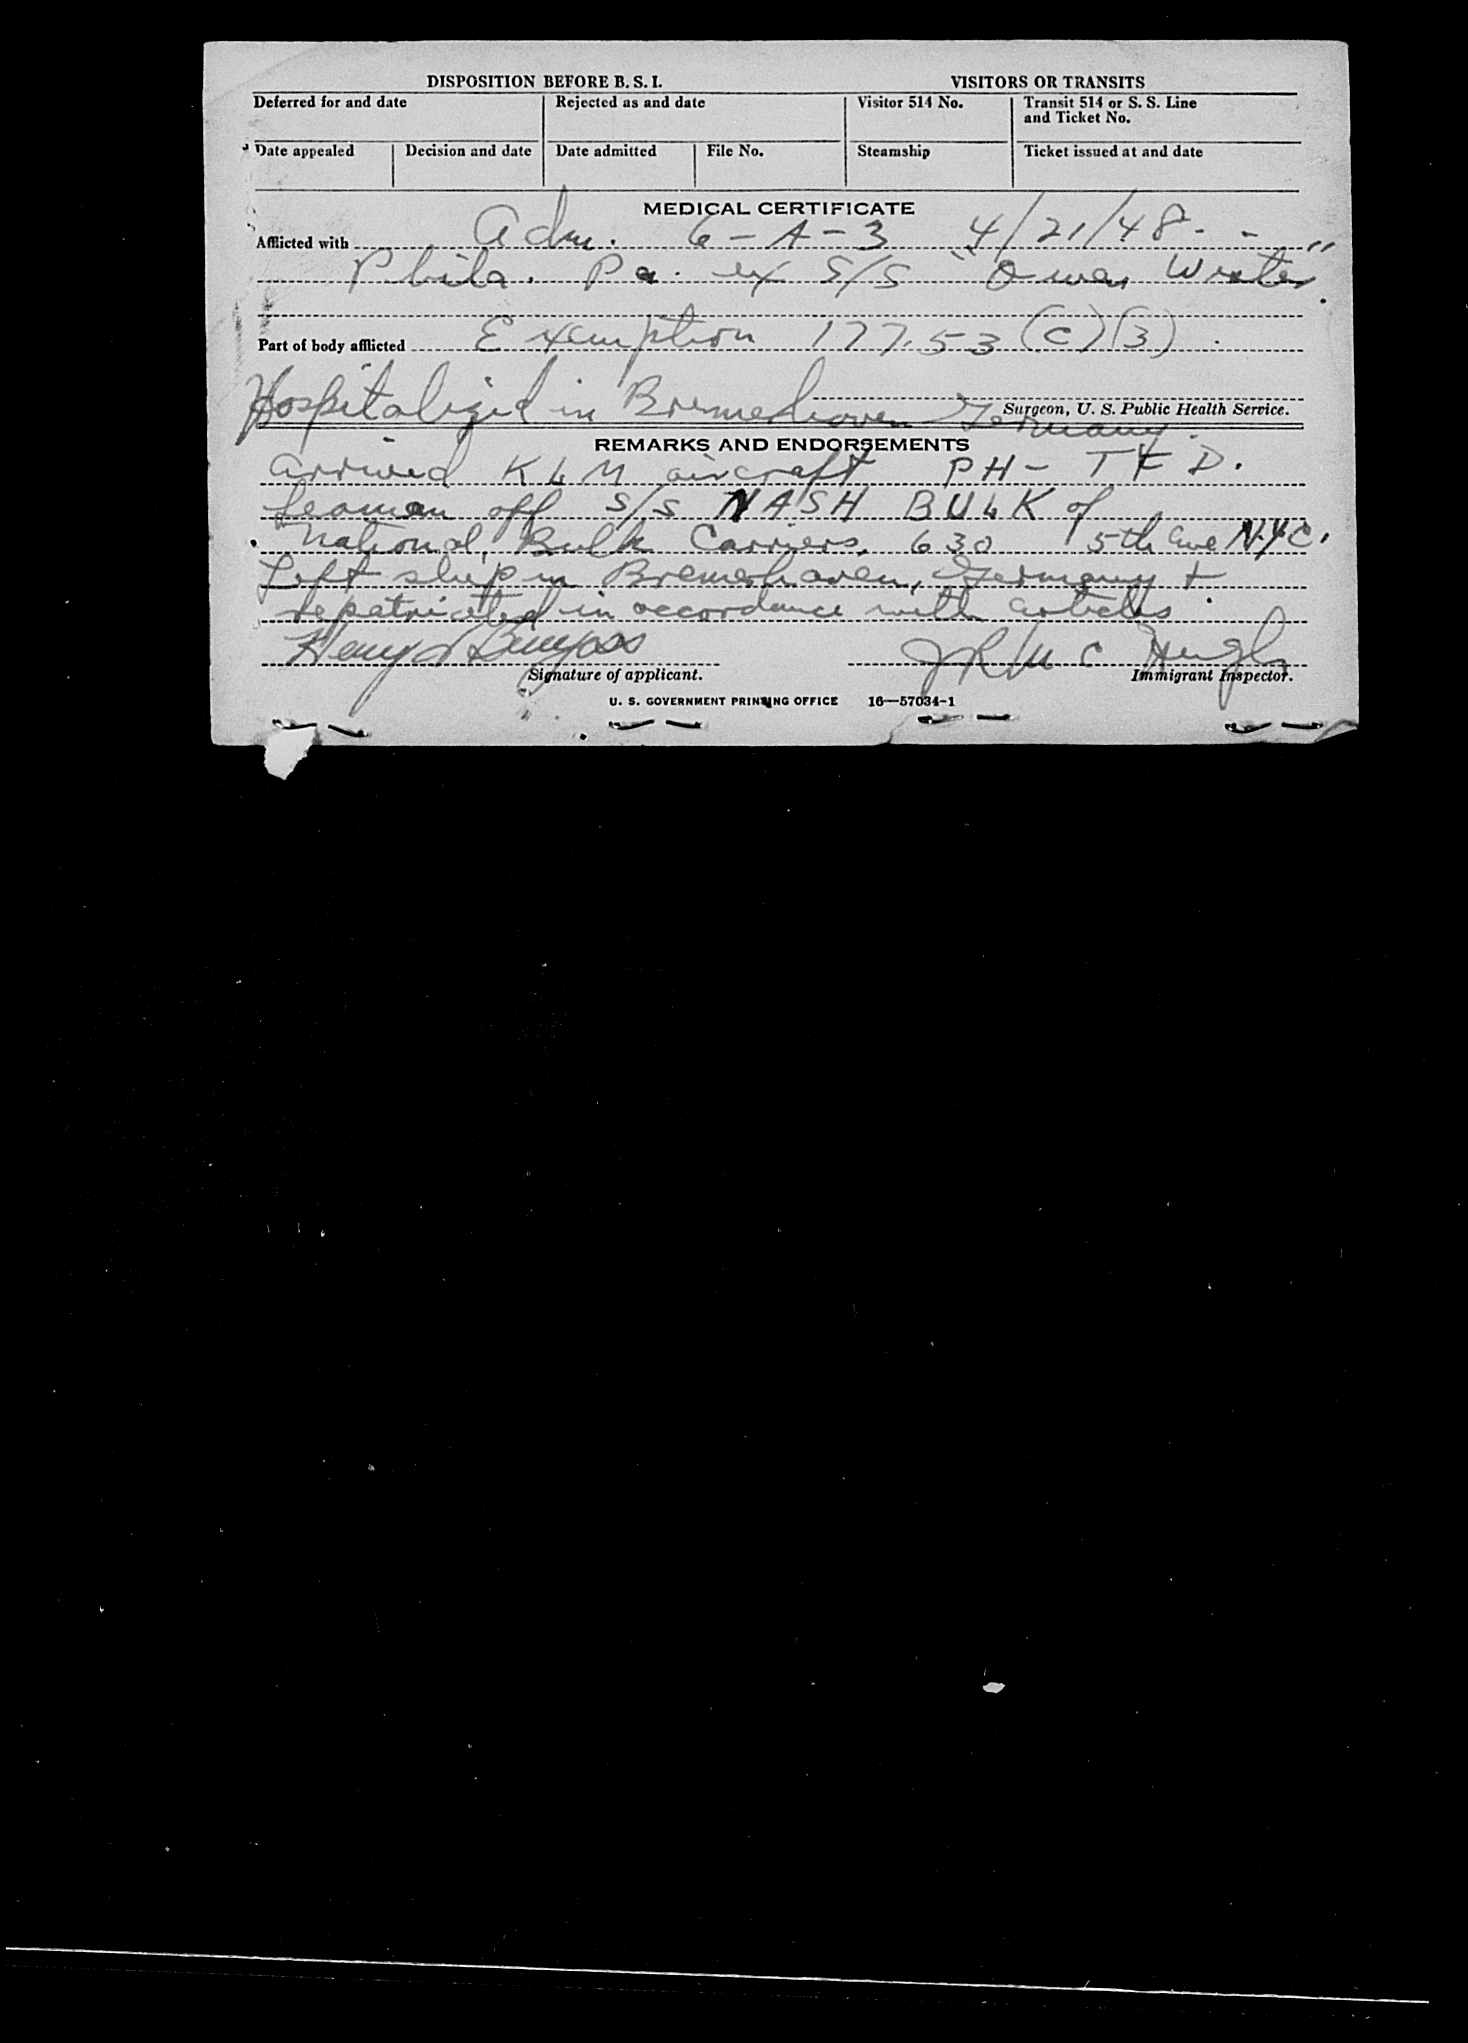 DISPOSITION BEFORE B. S. I. VISITORS OR TRANSITS
Deferred for and date Rejected as and date Visitor 514 No. Transit 514 or S. S. Line
and Ticket No.
Date appealed Decision and date Date admitted File No. Steamship Ticket issued at and date
MEDICAL CERTIFICATE
Afflicted with Adm. 6-A-3 4/21/48.
Phila. Pa. ex S/S "Owen Wister".
Part of body afflicted Exemption 177.53 (c)(3).
Hospitalized in Bremerhaven Germany.
Surgeon, U. S. Public Health Service.
REMARKS AND ENDORSEMENTS
Arrived KLM aircraft PH-TFD.
Seaman off S/S NASH BULK of
National Bulk Carriers, 630 5th Ave N.Y.C.
Left ship in Bremerhaven, Germany +
repatriated in accordance with articles.
Henry J R McHugh
Signature of applicant. Immigrant Inspector.
U. S. GOVERNMENT PRINTING OFFICE 16—57034-1